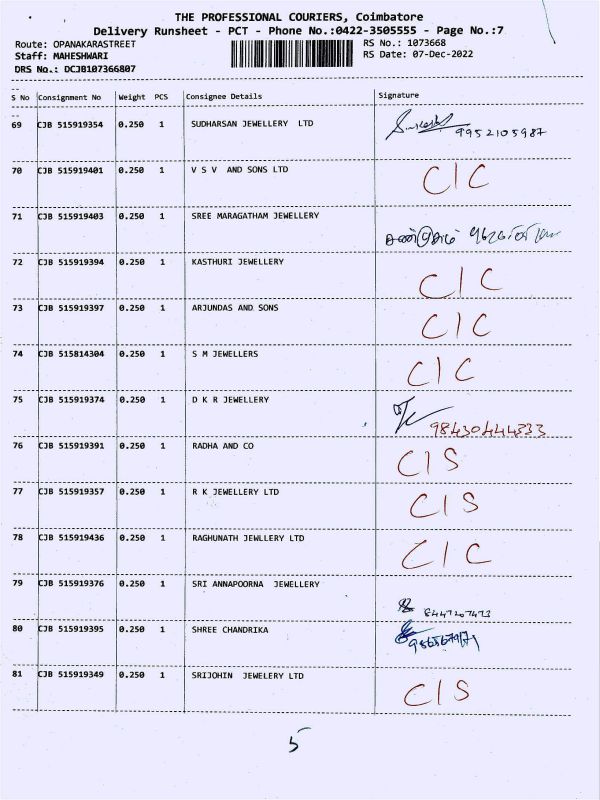 THE PROFESSIONAL COURIERS, Coimbatore
Delivery Runsheet - PCT - Phone No.:0422-3505555 - Page No.:7
Route: OPANAKARASTREET RS No.: 1073668
Staff: MAHESHWARI RS Date: 07-Dec-2022
DRS No.: DCJB107366807
S No Consignment No Weight PCS Consignee Details Signature
69 CJB 515919354 0.250 1 SUDHARSAN JEWELLERY LTD 9952105987
70 CJB 515919401 0.250 1 V S V AND SONS LTD C/C
71 CJB 515919403 0.250 1 SREE MARAGATHAM JEWELLERY
72 CJB 515919394 0.250 1 KASTHURI JEWELLERY C/C
73 CJB 515919397 0.250 1 ARJUNDAS AND SONS C/C
74 CJB 515814304 0.250 1 S M JEWELLERS C/C
75 CJB 515919374 0.250 1 D K R JEWELLERY 98430444333
76 CJB 515919391 0.250 1 RADHA AND CO C/S
77 CJB 515919357 0.250 1 R K JEWELLERY LTD C/S
78 CJB 515919436 0.250 1 RAGHUNATH JEWLLERY LTD C/C
79 CJB 515919376 0.250 1 SRI ANNAPOORNA JEWELLERY
80 CJB 515919395 0.250 1 SHREE CHANDRIKA
81 CJB 515919349 0.250 1 SRIJOHIN JEWELERY LTD C/S
5